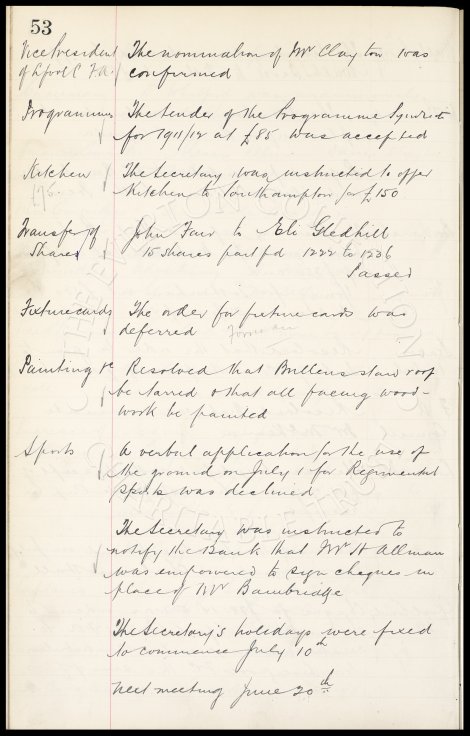 53
Vice President The nomination of Mr Clayton was
of L'pool C F.A. confirmed
Programmes The tender of the Programme Syndicate
for 1911/12 at £85 was accepted
Kitchen The Secretary was instructed to offer
Kitchen to Southampton for £150
Transfer of John Fair to Eli Gledhill
Shares 15 shares part pd 1222 to 1236
Passed
Fixture cards The order for fixture cards was
deferred
Painting &c Resolved that Bullens stand roof
be tarred & that all facing wood-
work be painted
Sports A verbal application for the use of
the ground on July 1 for Regimental
Sports was declined
The Secretary was instructed to
notify the Bank that Mr H Allman
was empowered to sign cheques in
place of Mr Bainbridge
The Secretary's holidays were fixed
to commence July 10th
Next meeting June 20th